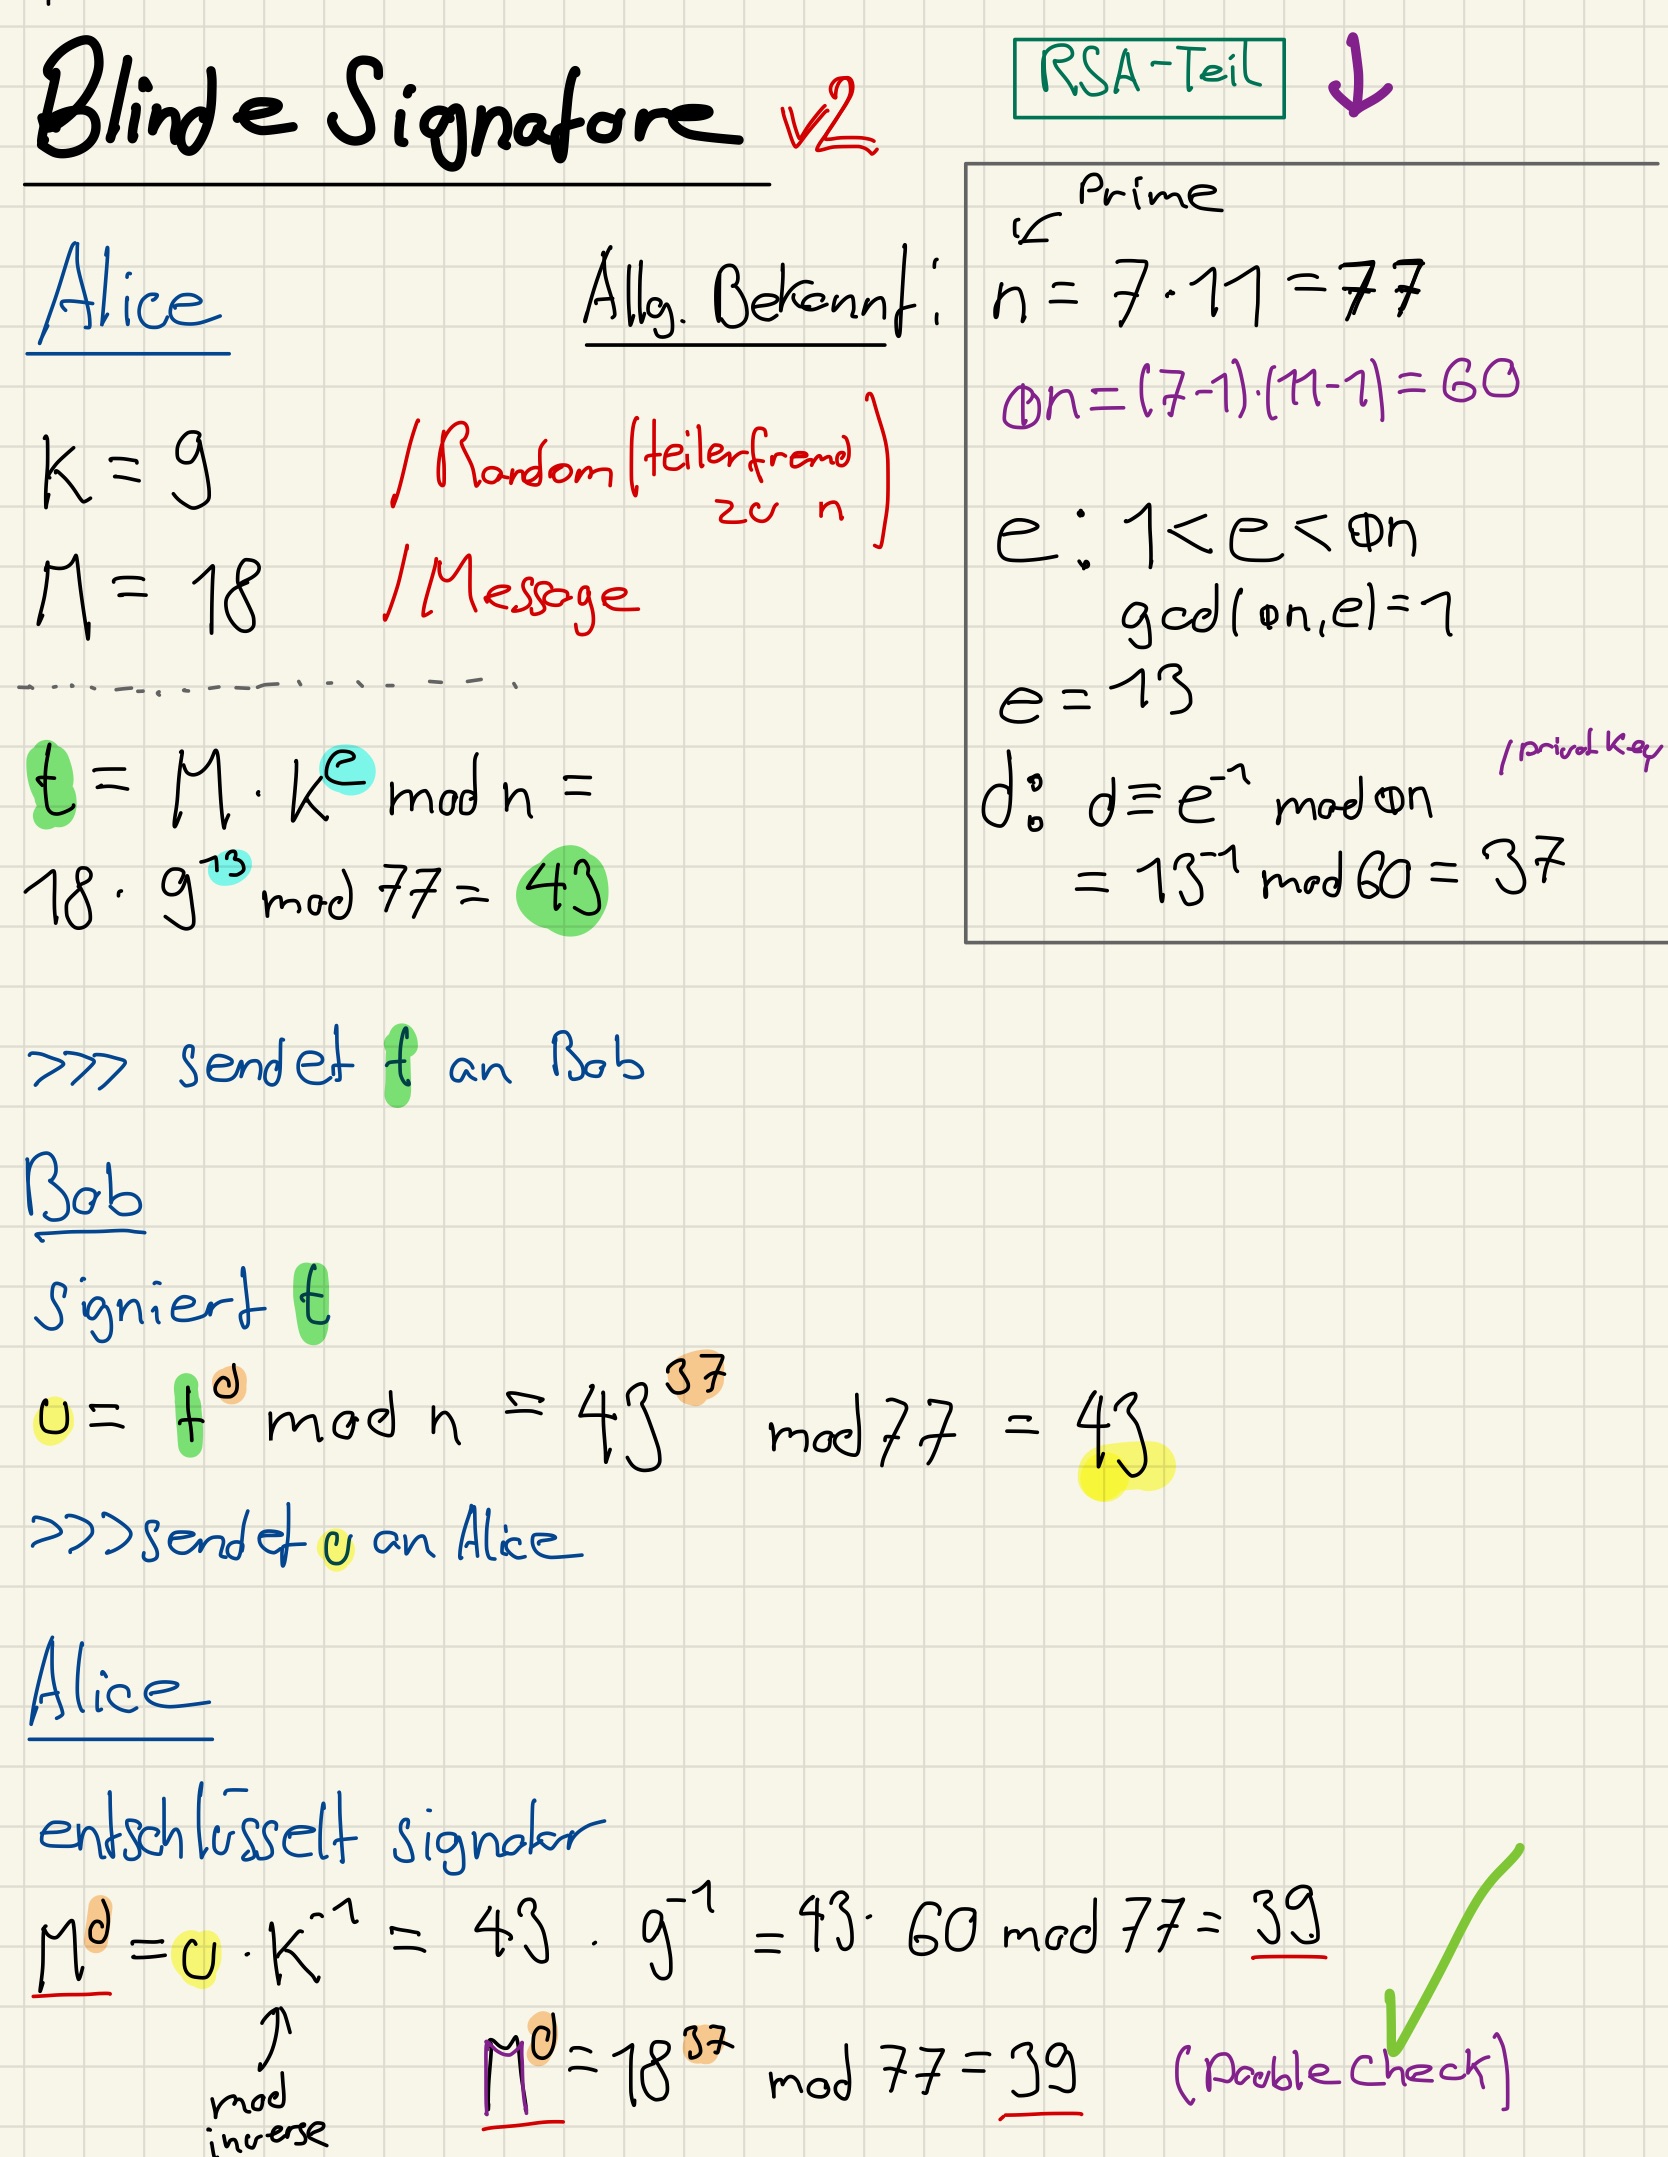 Blinde Signature v2
RSA-Teil ↓
Alice
Allg. Bekannt:
Prime
n = 7 · 11 = 77
Φn = (7-1)·(11-1) = 60
e: 1 < e < Φn
gcd(Φn, e) = 1
e = 13
/privat Key
d: d ≡ e⁻¹ mod Φn
= 13⁻¹ mod 60 = 37
K = 9 /Random (teilerfremd zu n)
M = 18 /Message
t = M · K^e mod n =
18 · 9^13 mod 77 = 43
>>> sendet t an Bob
Bob
signiert t
u = t^d mod n = 43^37 mod 77 = 43
>>> sendet u an Alice
Alice
entschlüsselt signatur
M^d = u · K⁻¹ = 43 · 9⁻¹ = 43 · 60 mod 77 = 39
mod
inverse
M^d = 18^37 mod 77 = 39 (Double Check)